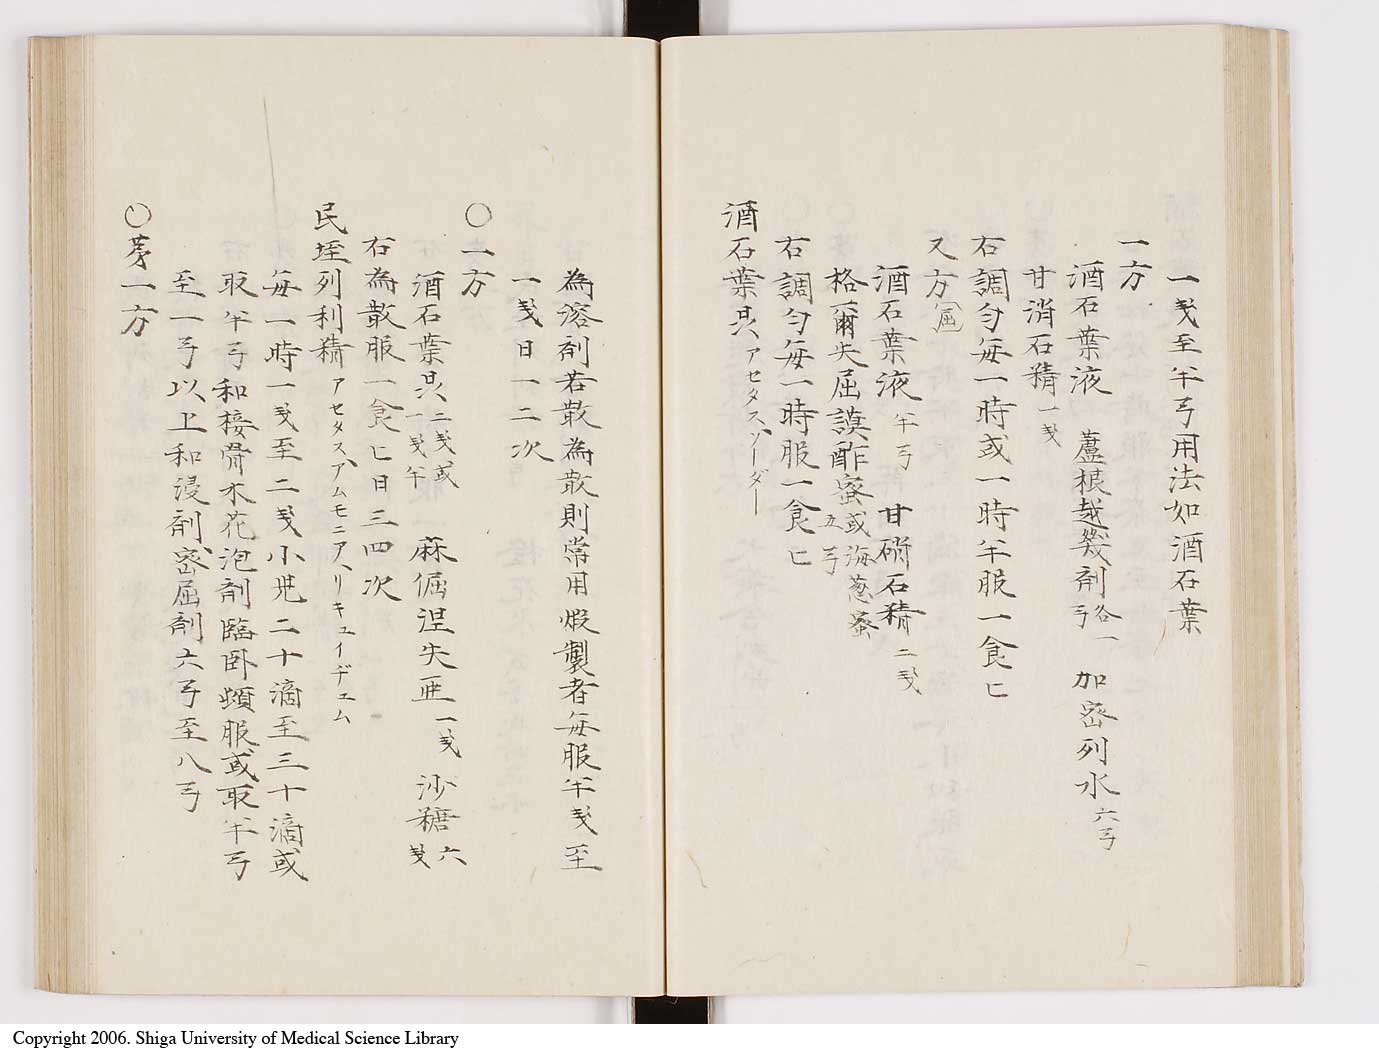 一戔至半弓用法如酒石葉
一方
酒石葉液 蘆根越幾剤 各一弓 加密列水 六弓
甘消石精 一戔
右調匀毎一時或一時半服一食匕
又方 屈
酒石葉液 半弓 甘硝石精 二戔
格爾失屈謨酢蜜 或海葱蜜 五弓
右調匀毎一時服一食匕
酒石葉曹 アセタス、ソーダー
為溶剤若散為散則常用煆製者毎服半戔至
一戔日一二次
〇一方
酒石葉曹 二戔或一戔半 麻倔涅失亜 一戔 沙糖 六戔
右為散服一食匕日三四次
民埕列利精 アセタス、アムモニア、リキュイヂュム
毎一時一戔至二戔小児二十滴至三十滴或
取半弓和接骨木花泡剤臨臥頓服或取半弓
至一弓以上和浸剤密屈剤六弓至八弓
〇第一方
Copyright 2006. Shiga University of Medical Science Library